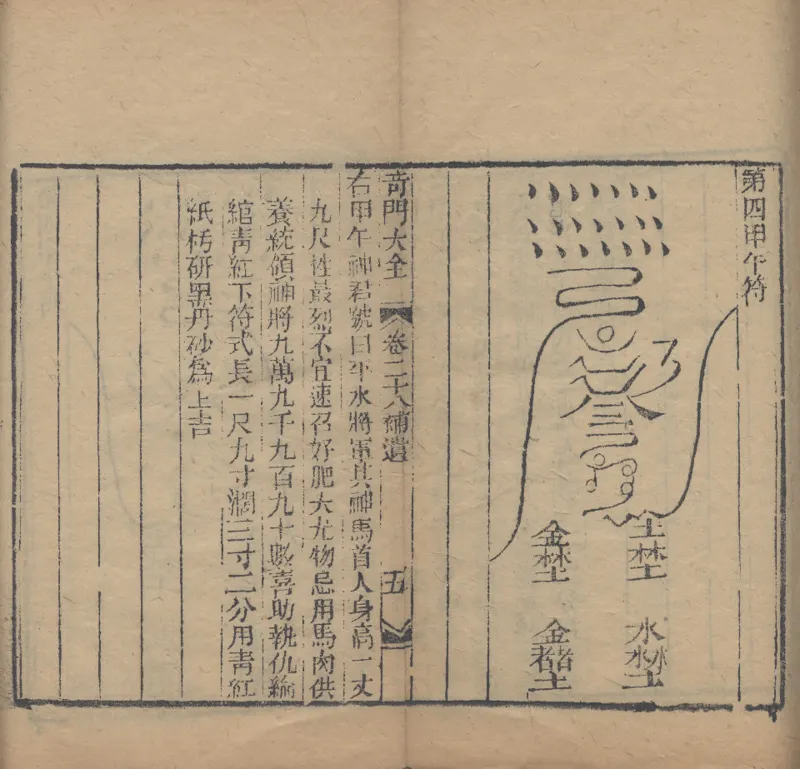 第四甲午符
奇門大全 卷二十八補遺 五
右甲午神君號曰平水將軍其神馬首人身高一丈
九尺性最烈不宜速召好肥大尤物忌用馬肉供
養統領神將九萬九千九百九十 喜助執仇綸
綰青紅下符式長一尺九寸濶三寸二分用青紅
紙 研墨丹砂爲上吉